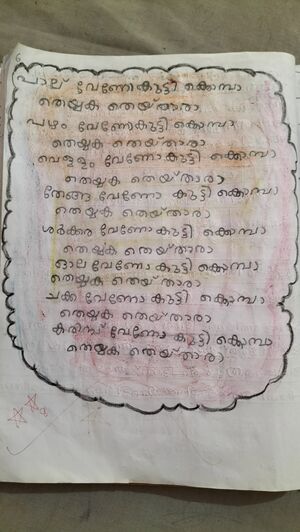 പാല് വേണോകുട്ടി കൊമ്പാ
തെയ്യക തെയ് താരാ
പഴം വേണോകുട്ടി കൊമ്പാ
തെയ്യക തെയ് താരാ
വെള്ളം വേണോകുട്ടി കൊമ്പാ
തെയ്യക തെയ് താരാ
തേങ്ങ വേണോ കുട്ടി കൊമ്പാ
തെയ്യക തെയ് താരാ
ശർക്കര വേണോ കുട്ടി കൊമ്പാ
തെയ്യക തെയ് താരാ
ഓല വേണോ കുട്ടി കൊമ്പാ
തെയ്യക തെയ് താരാ
ചക്ക വേണോ കുട്ടി കൊമ്പാ
തെയ്യക തെയ് താരാ
കരിമ്പ് വേണോ കുട്ടി കൊമ്പാ
തെയ്യക തെയ് താരാ